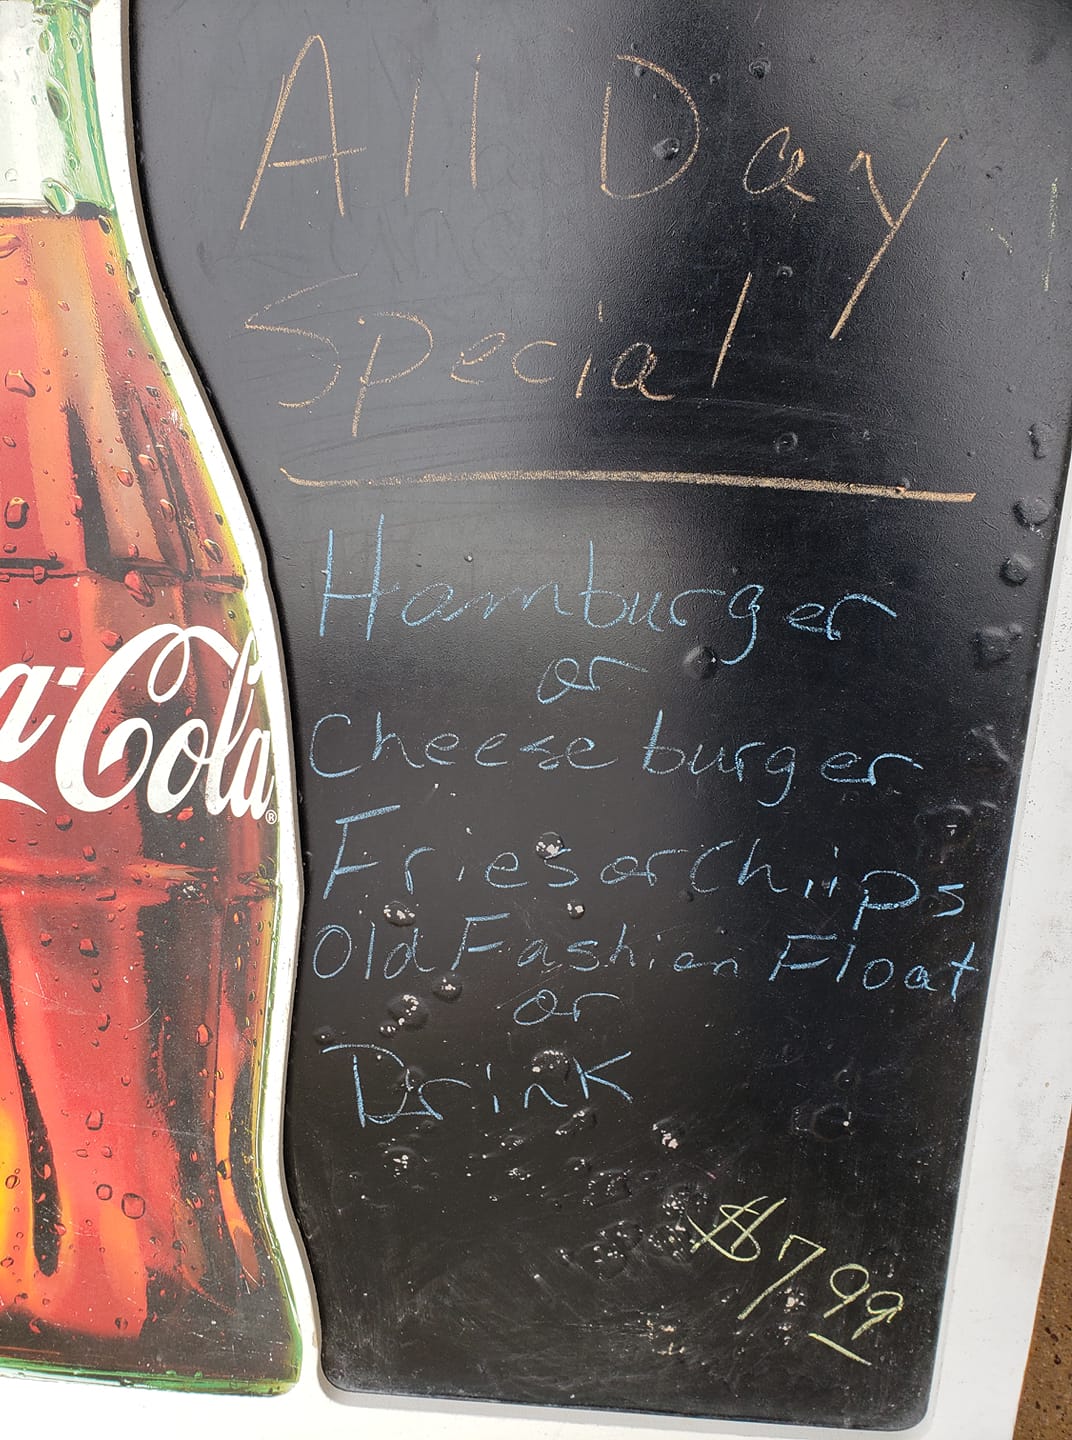 All Day
Special
Hamburger
or
Cheeseburger
Fries or Chiips
Old Fashion Float
or
Drink
$7.99
a-Cola®